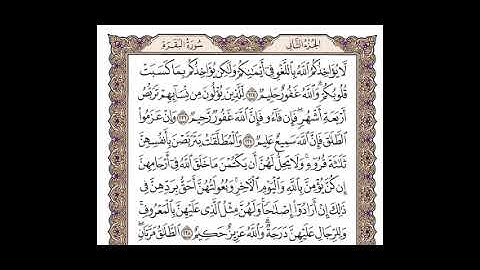 الجزء الثاني سورة البقرة
لَّا يُؤَاخِذُكُمُ ٱللَّهُ بِٱللَّغْوِ فِىٓ أَيْمَٰنِكُمْ وَلَٰكِن يُؤَاخِذُكُم بِمَا كَسَبَتْ
قُلُوبُكُمْ وَٱللَّهُ غَفُورٌ حَلِيمٌ ٢٢٥ لِّلَّذِينَ يُؤْلُونَ مِن نِّسَآئِهِمْ تَرَبُّصُ
أَرْبَعَةِ أَشْهُرٍ فَإِن فَآءُو فَإِنَّ ٱللَّهَ غَفُورٌ رَّحِيمٌ ٢٢٦ وَإِنْ عَزَمُوا۟
ٱلطَّلَٰقَ فَإِنَّ ٱللَّهَ سَمِيعٌ عَلِيمٌ ٢٢٧ وَٱلْمُطَلَّقَٰتُ يَتَرَبَّصْنَ بِأَنفُسِهِنَّ
ثَلَٰثَةَ قُرُوٓءٍ وَلَا يَحِلُّ لَهُنَّ أَن يَكْتُمْنَ مَا خَلَقَ ٱللَّهُ فِىٓ أَرْحَامِهِنَّ
إِن كُنَّ يُؤْمِنَّ بِٱللَّهِ وَٱلْيَوْمِ ٱلْءَاخِرِ وَبُعُولَتُهُنَّ أَحَقُّ بِرَدِّهِنَّ فِى
ذَٰلِكَ إِنْ أَرَادُوٓا۟ إِصْلَٰحًا وَلَهُنَّ مِثْلُ ٱلَّذِى عَلَيْهِنَّ بِٱلْمَعْرُوفِ
وَلِلرِّجَالِ عَلَيْهِنَّ دَرَجَةٌ وَٱللَّهُ عَزِيزٌ حَكِيمٌ ٢٢٨ ٱلطَّلَٰقُ مَرَّتَانِ